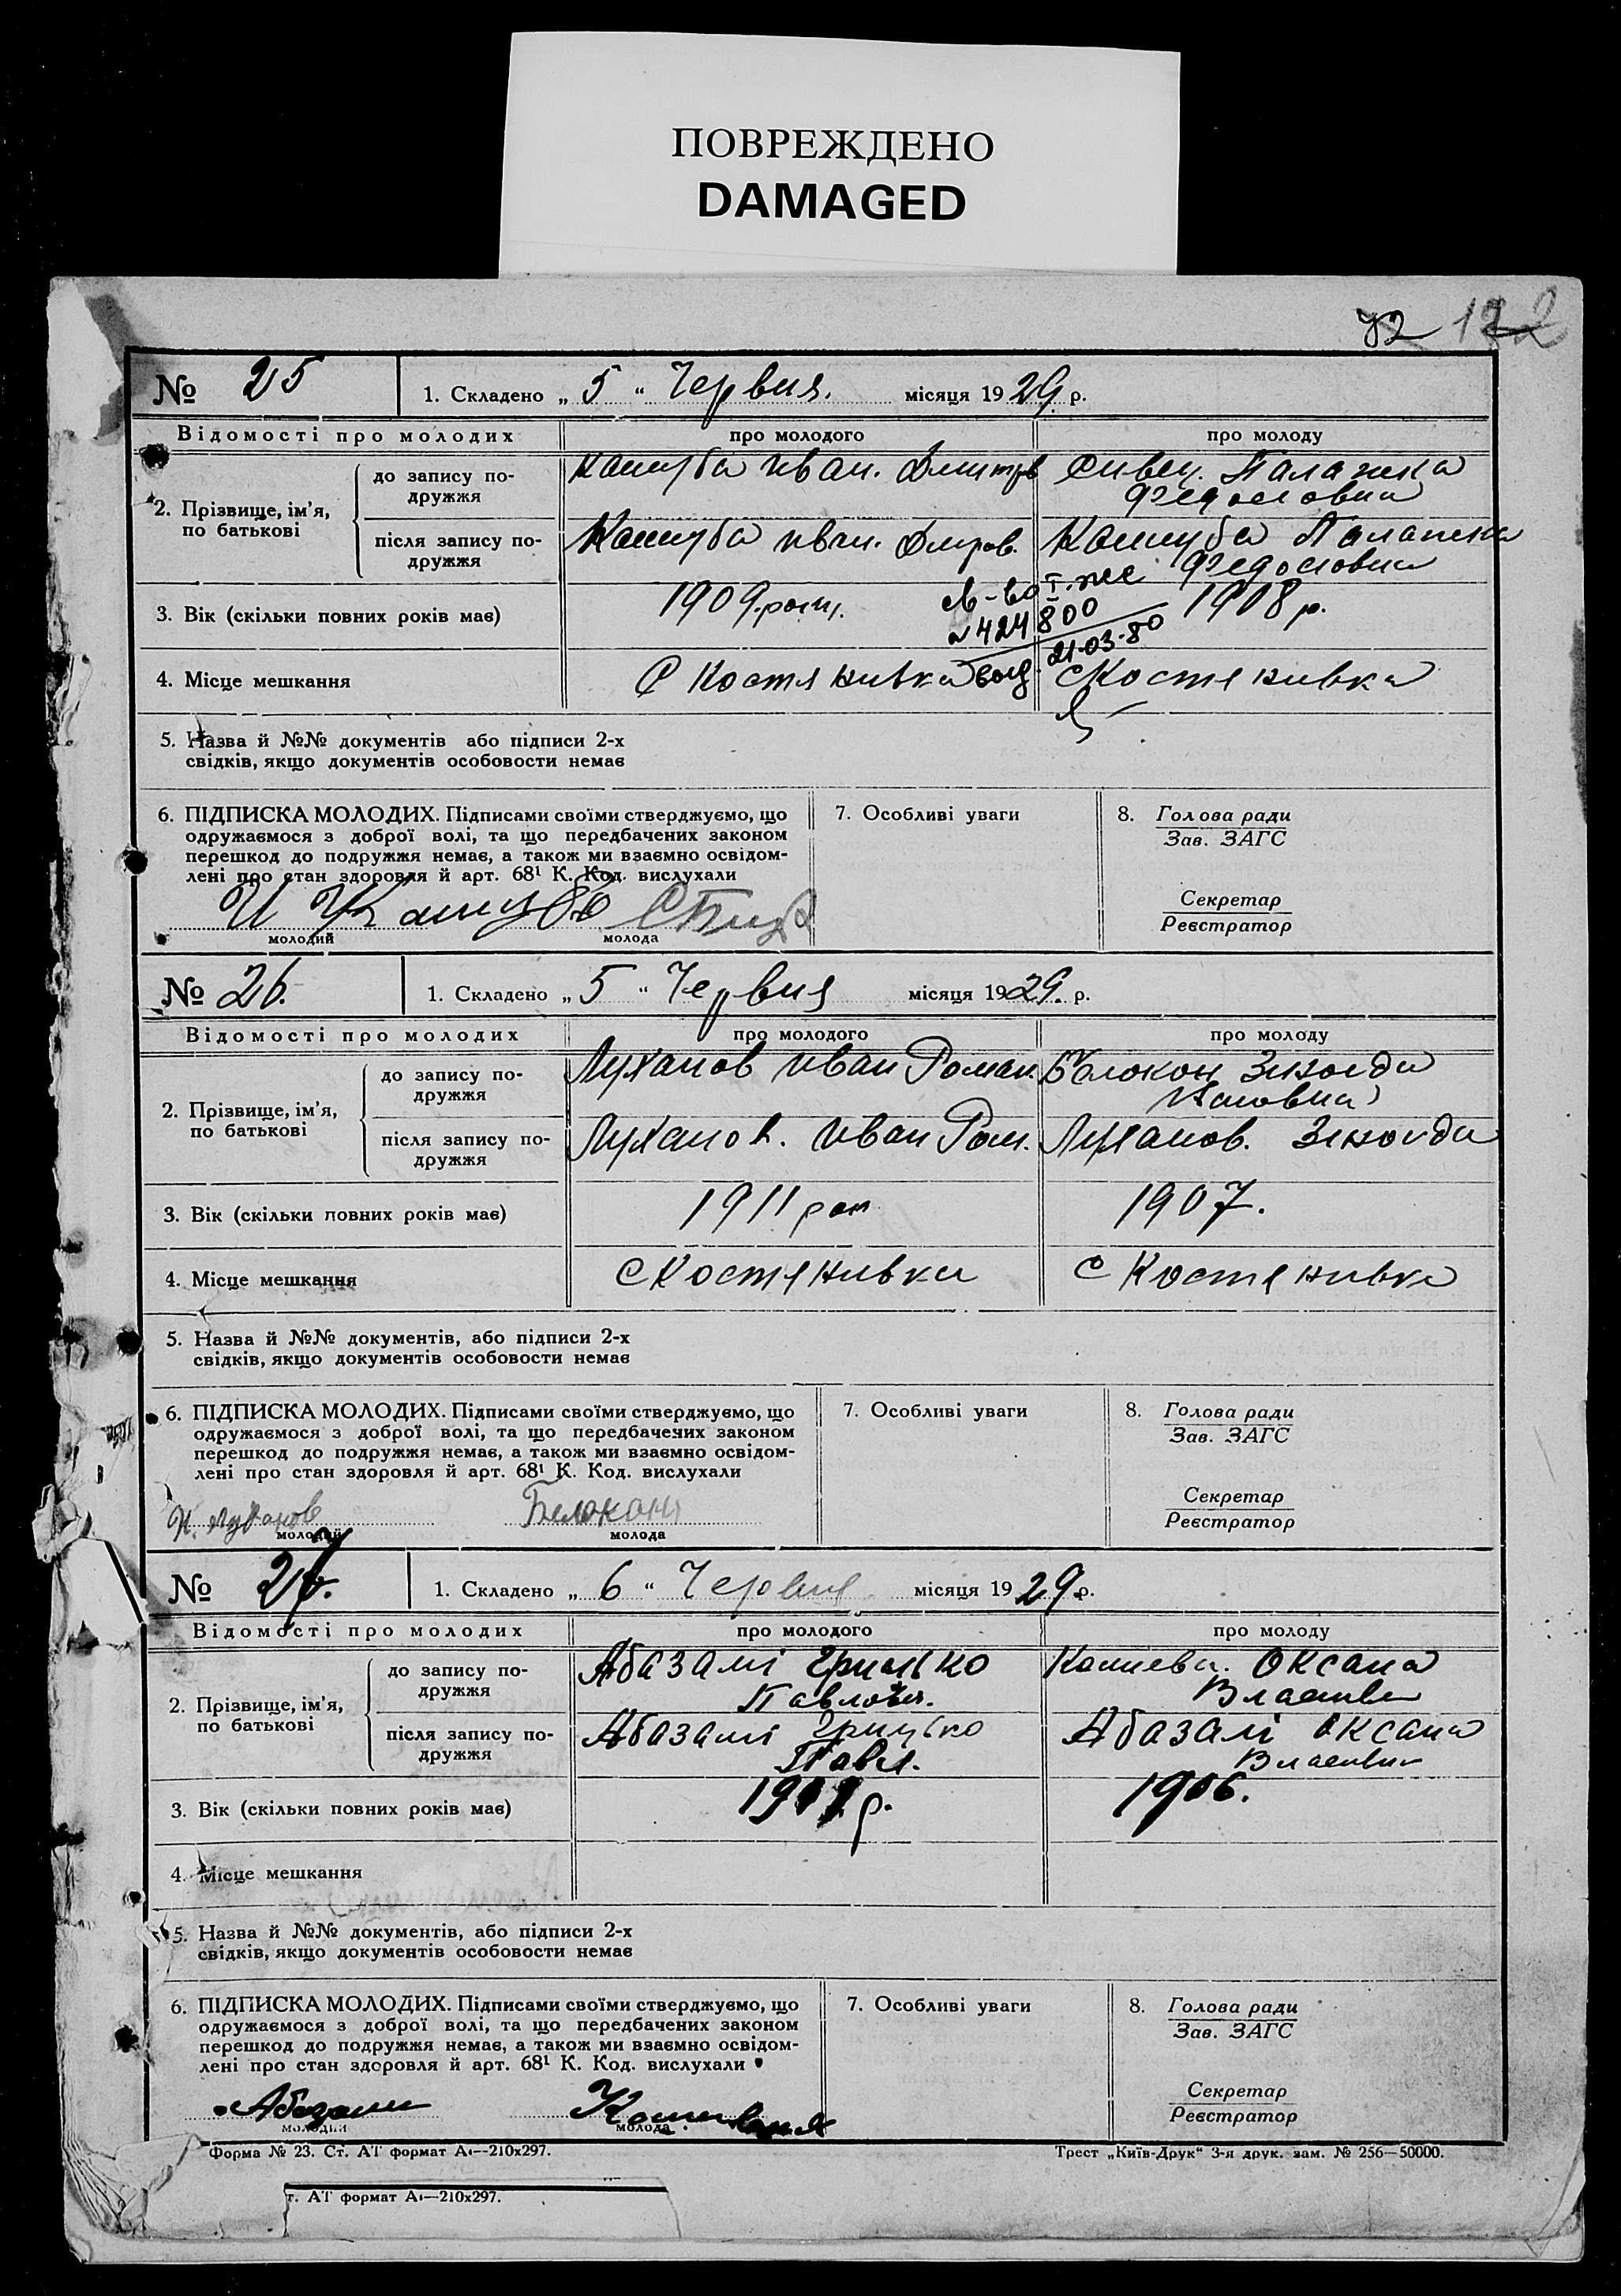 ПОВРЕЖДЕНО
DAMAGED
№ 25
1. Складено „ 5 “ Червня. місяця 1929 р.
Відомості про молодих
про молодого
про молоду
2. Прізвище, ім’я,
по батькові
до запису по-
дружжя
Кашуба Иван.
Палажка
Федосовна
після запису по-
дружжя
Кашуба Иван.
Кашуба Палажка
Федосовна
3. Вік (скільки повних років має)
1909
1908 р.
св-во I. же
№ 424800
21-03-80
4. Місце мешкання
С Костянивка
С Костянивка
5. Назва й №№ документів або підписи 2-х
свідків, якщо документів особовости немає
6. ПІДПИСКА МОЛОДИХ. Підписами своїми стверджуємо, що
одружаємося з доброї волі, та що передбачених законом
перешкод до подружжя немає, а також ми взаємно освідом-
лені про стан здоровля й арт. 68¹ К. Код. вислухали
И Кашуба
молодий
молода
7. Особливі уваги
8. Голова ради
Зав. ЗАГС
Секретар
Реєстратор
№ 26.
1. Складено „ 5 “ Червня місяця 1929. р.
Відомості про молодих
про молодого
про молоду
2. Прізвище, ім’я,
по батькові
до запису по-
дружжя
Луханов Иван Роман.
Білокон Зиноида
після запису по-
дружжя
Луханов. Иван Ром.
Луханов. Зиноида
3. Вік (скільки повних років має)
1911 рок
1907.
4. Місце мешкання
С Костянивка
С Костянивка
5. Назва й №№ документів, або підписи 2-х
свідків, якщо документів особовости немає
6. ПІДПИСКА МОЛОДИХ. Підписами своїми стверджуємо, що
одружаємося з доброї волі, та що передбачених законом
перешкод до подружжя немає, а також ми взаємно освідом-
лені про стан здоровля й арт. 68¹ К. Код. вислухали
И. Луханов
молодий
Белоконь
молода
7. Особливі уваги
8. Голова ради
Зав. ЗАГС
Секретар
Реєстратор
№ 27.
1. Складено „ 6 “ Червня місяця 1929 р.
Відомості про молодих
про молодого
про молоду
2. Прізвище, ім’я,
по батькові
до запису по-
дружжя
Абазалі Грицько
Павлович.
Оксана
після запису по-
дружжя
Абазалі Грицько
Павл.
Абазалі Оксана
3. Вік (скільки повних років має)
1906.
4. Місце мешкання
5. Назва й №№ документів, або підписи 2-х
свідків, якщо документів особовости немає
6. ПІДПИСКА МОЛОДИХ. Підписами своїми стверджуємо, що
одружаємося з доброї волі, та що передбачених законом
перешкод до подружжя немає, а також ми взаємно освідом-
лені про стан здоровля й арт. 68¹ К. Код. вислухали
Абазали
молодий
молода
7. Особливі уваги
8. Голова ради
Зав. ЗАГС
Секретар
Реєстратор
Форма № 23. Ст. АТ формат А₄—210x297.
Трест „Київ-Друк“ 3-я друк. зам. № 256—50000.
т. АТ формат А₄—210x297.